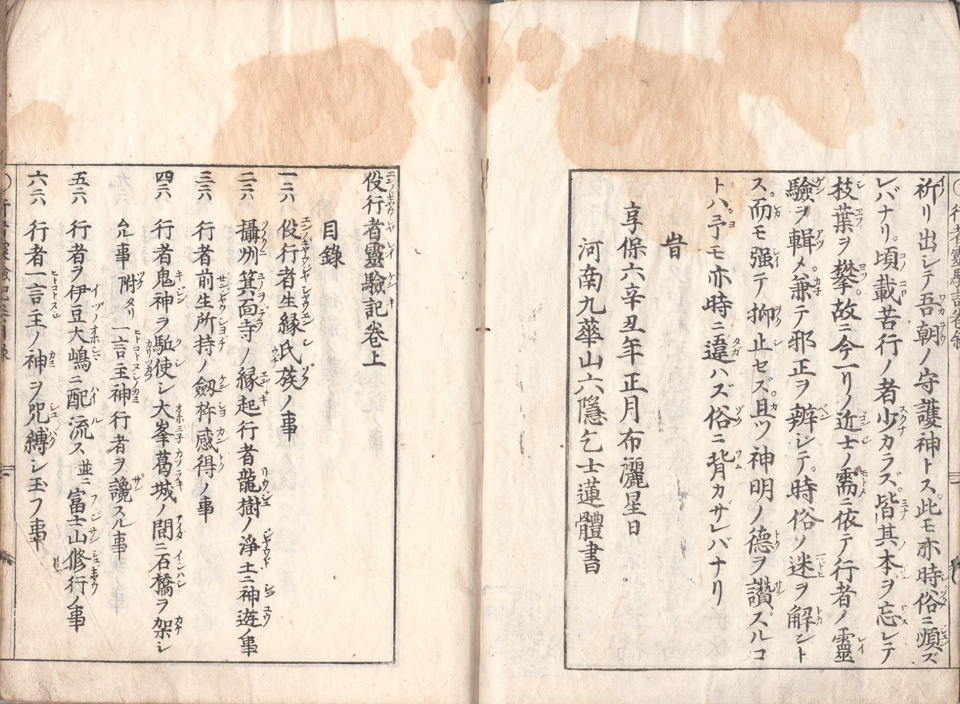 祈リ出シテ吾朝ノ守護神トス。此モ亦時俗ニ順ズ
レバナリ。頃載苦行ノ者少カラズ。皆其本ヲ忘レテ
枝葉ヲ攀。故ニ今一リノ近士ノ需ニ依テ行者ノ靈
驗ヲ輯メ兼テ邪正ヲ辨シテ。時俗ノ迷ヲ解ント
ス。而モ强テ抑止セズ。且ツ神明ノ德ヲ讃スルコ
トハ予モ亦時ニ違ハズ俗ニ背カザレバナリ
旹
享保六辛丑年正月布灑星日
河南九華山六隱乞士蓮體書
役行者靈驗記卷上
目錄
一二ハ 役行者生縁氏族ノ事
二ニハ 攝州箕面寺ノ縁起行者龍樹ノ淨土ニ神遊ノ事
三ニハ 行者前生所持ノ劔杵感得ノ事
四ニハ 行者鬼神ヲ駈使シ大峯葛城ノ間ニ石橋ヲ架シ
玉事 附タリ 一言主神行者ヲ讒スル事
五ニハ 行者ヲ伊豆大嶋ニ配流ス 並ニ 富士山修行ノ事
六ニハ 行者一言主ノ神ヲ咒縛シ玉フ事